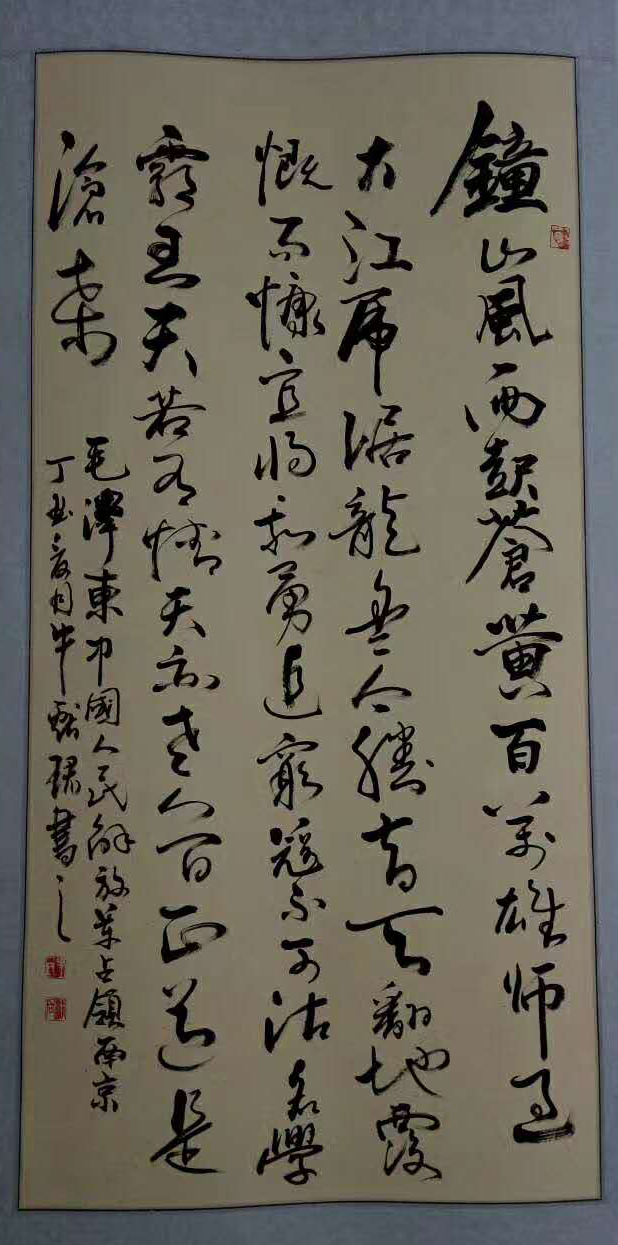 鐘山風雨起蒼黄百萬雄師過
大江虎踞龍盤今勝昔天翻地覆
慨而慷宜將剩勇追窮寇不可沽名學
霸王天若有情天亦老人間正道是
滄桑
毛澤東中國人民解放軍占領南京
丁丑夏月牛書之